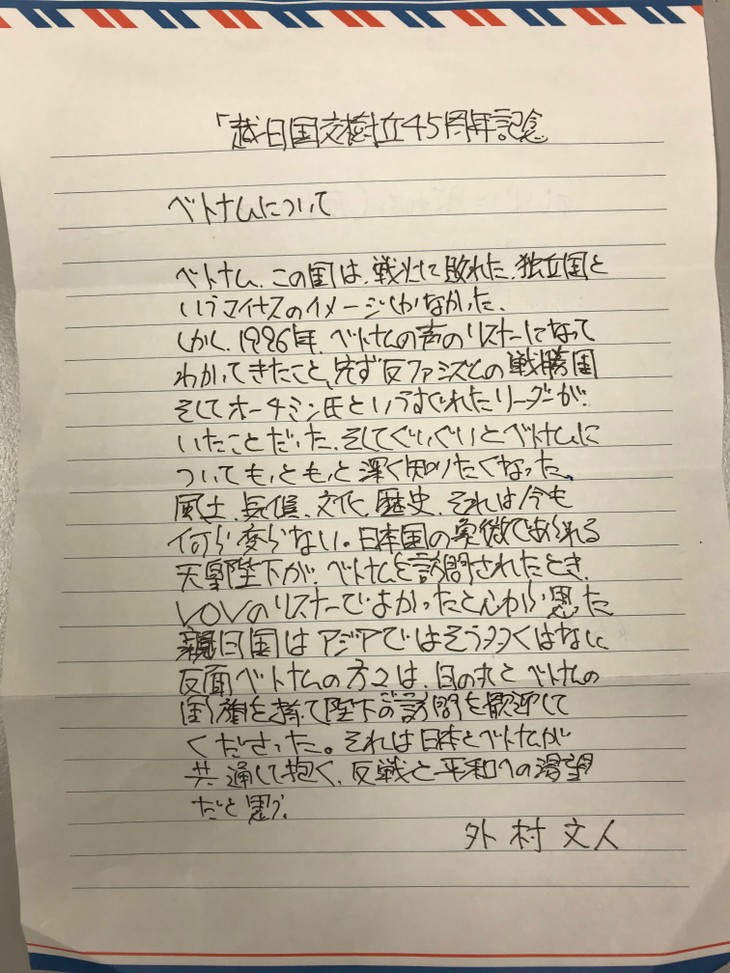 「越日国交樹立45周年記念
ベトナムについて
ベトナム、この国は、戦火に敗れた、独立国と
いうマイナスのイメージしかなかった、
しかし、1996年、ベトナムの声のリスナーになって
わかってきたこと、先ず反ファシズムとの戦勝国
そしてホーチミン氏というすぐれたリーダーが、
いたことだった、そしてぐいぐいとベトナムに
ついてもっともっと深く知りたくなった。
風土、気候、文化、歴史、それは今も
何ら変らない。日本国の象徴であられる
天皇陛下が、ベトナムを訪問されたとき、
VOVのリスナーでよかったと心から思った
親日国はアジアではそう多くはない
反面ベトナムの方々は、日の丸とベトナムの
国旗を持て陛下の訪問を歓迎して
くださった。それは日本とベトナムが
共通して抱く、反戦と平和への渇望
だと思う。
外村文人